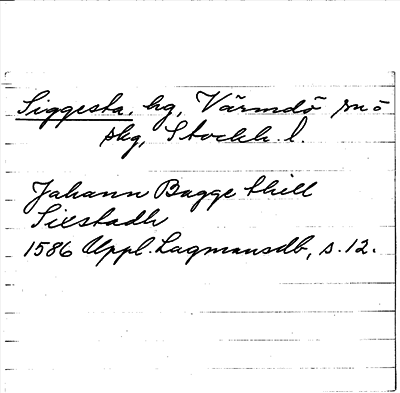 Siggesta, hg, Värmdö sn ō
skg, Stockh. l.
Johann Bagge thill
Sixstadh
1586 Uppl. Lagmansdb, s. 12.